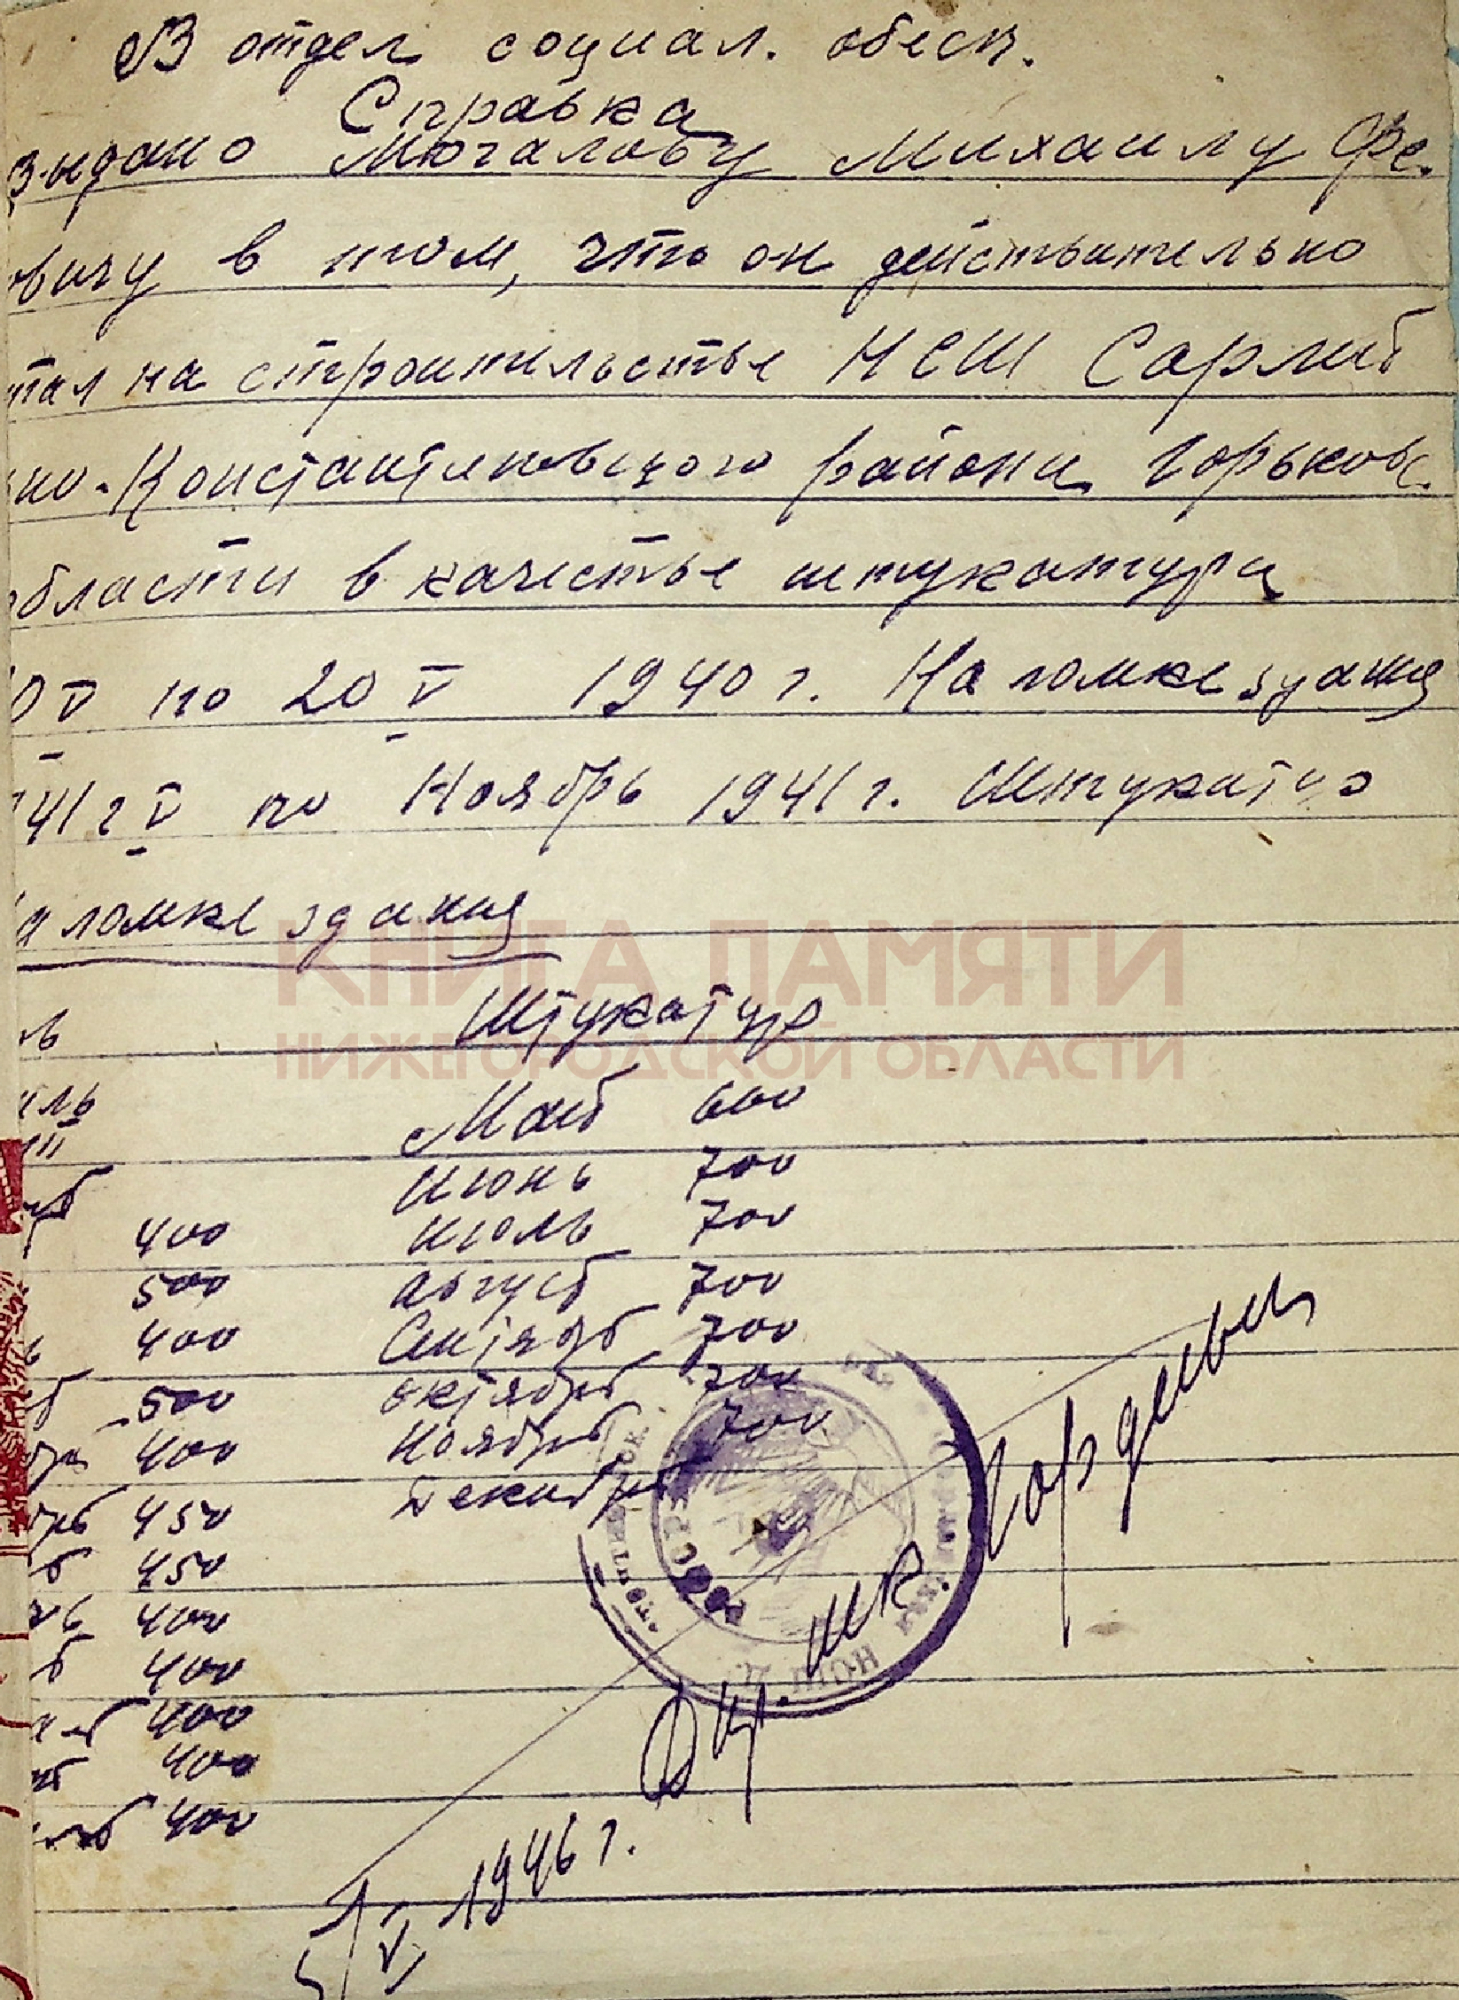 В отдел социал. обесп.
Справка
Выдано Мочалову Михаилу Фе.
овичу в том, что он действительно
тал на строительстве НСШ Сарлей
но-Константиновского района Горьков.
области в качестве штукатура
0 V по 20 V 1940 г. На ломке здания
41 г V по Ноябрь 1941 г. Штукатур
а ломке здания
КНИГА ПАМЯТИ
НИЖЕГОРОДСКОЙ ОБЛАСТИ
Штукатур
Май 600
Июнь 700
400 Июль 700
500 Август 700
400 Сентябрь 700
500 Октябрь 700
400 Ноябрь 700
450 Декабрь
450
400
400
400
400
400
Дир. шк. Гордеева
5/V 1946 г.